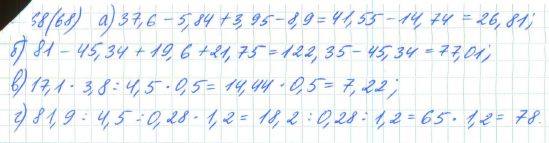 38(68) а) 37,6 - 5,84 + 3,95 - 8,9 = 41,55 - 14,74 = 26,81;
б) 81 - 45,34 + 19,6 + 21,75 = 122,35 - 45,34 = 77,01;
в) 17,1 · 3,8 : 4,5 · 0,5 = 14,44 · 0,5 = 7,22;
г) 81,9 : 4,5 : 0,28 · 1,2 = 18,2 : 0,28 : 1,2 = 65 · 1,2 = 78.